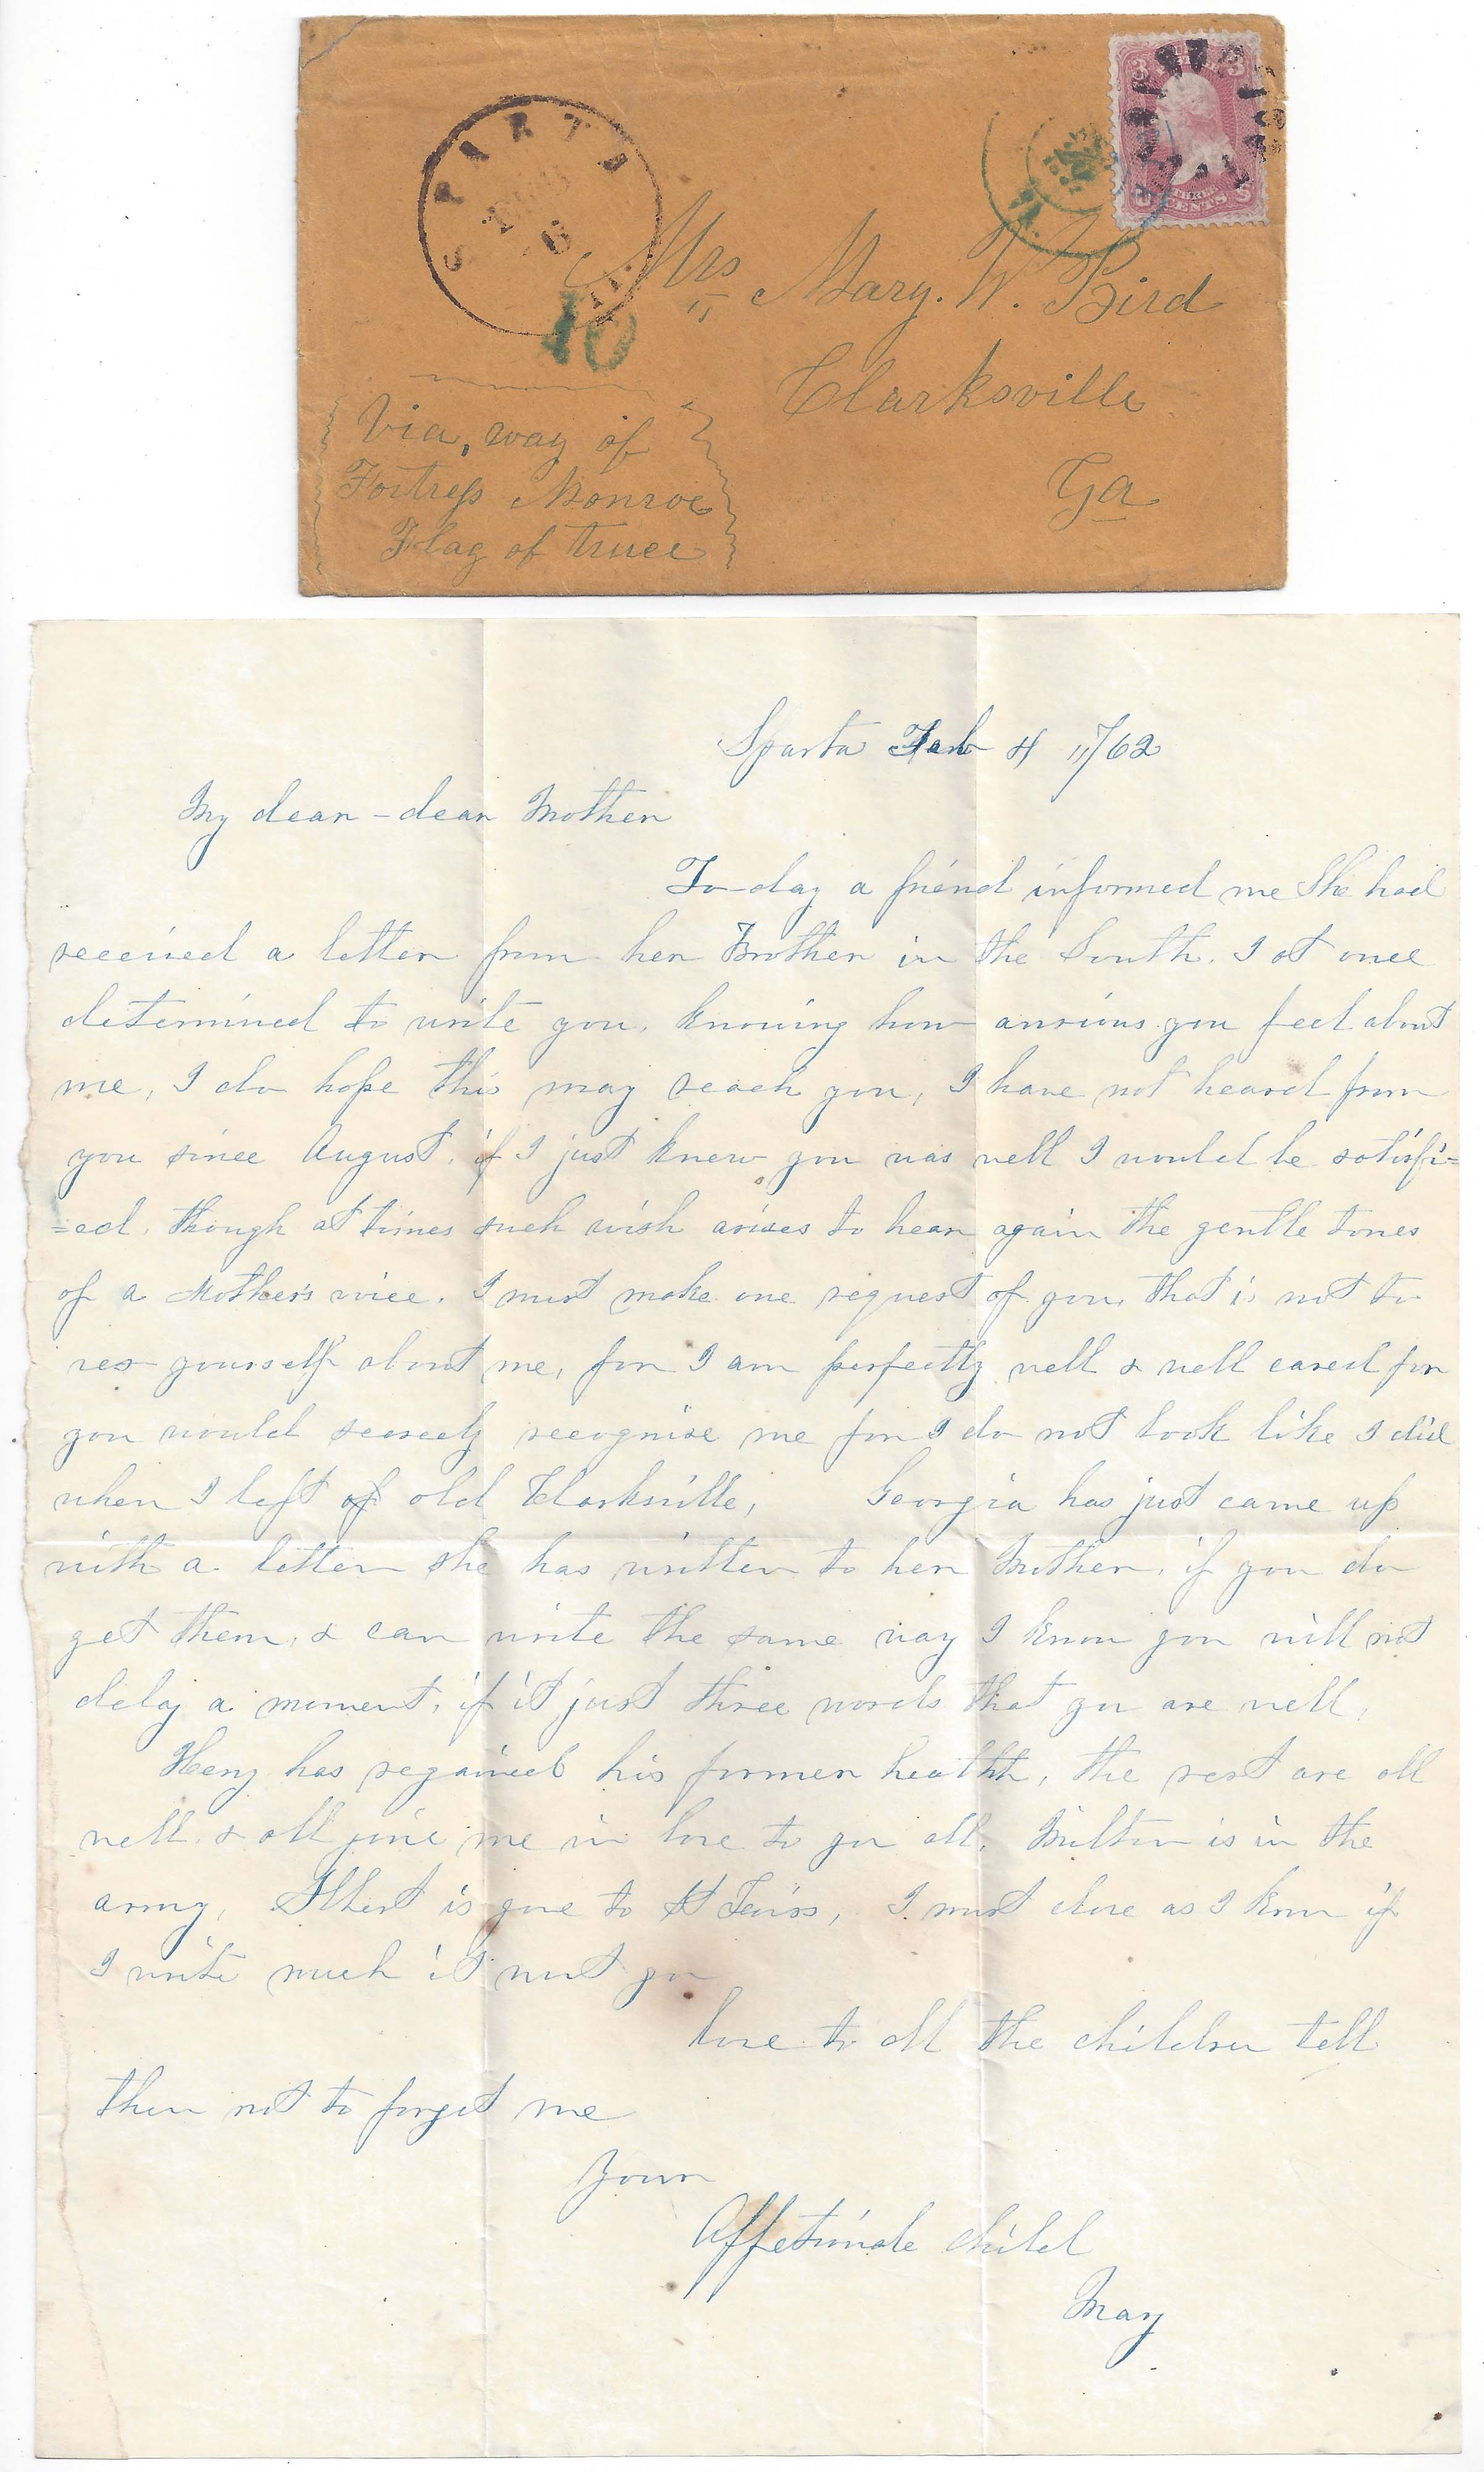 SPARTA
FEB
6
Ill.
10
3 3
CENTS
Mrs Mary. W. Bird
Clarksville
Ga
Via, way of
Fortress Monroe
Flag of truce
Sparta Feb 4 "/62
My dear - dear Mother
To-day a friend informed me She had
received a letter from her Brother in the South. I at once
determined to write you, knowing how anxious you feel about
me, I do hope this may reach you, I have not heard from
you since August, if I just knew you was well I would be satisfi=
=ed, though at times such wish arises to hear again the gentle tones
of a Mother's voice. I must make one request of you, that is not to
vex yourself about me, for I am perfectly well & well cared for
you would scarcely recognise me for I do not look like I did
when I left of old Clarksville, Georgia has just came up
with a letter she has written to her Mother, if you do
get them, & can write the same way I know you will not
delay a moment, if it just three words that you are well,
Henry has regained his former health, the rest are all
well, & all join me in love to you all, Milton is in the
army, Albert is gone to St Louis, I must close as I know if
I write much it must go
love to all the children tell
them not to forget me
Your
Affetionate child
May